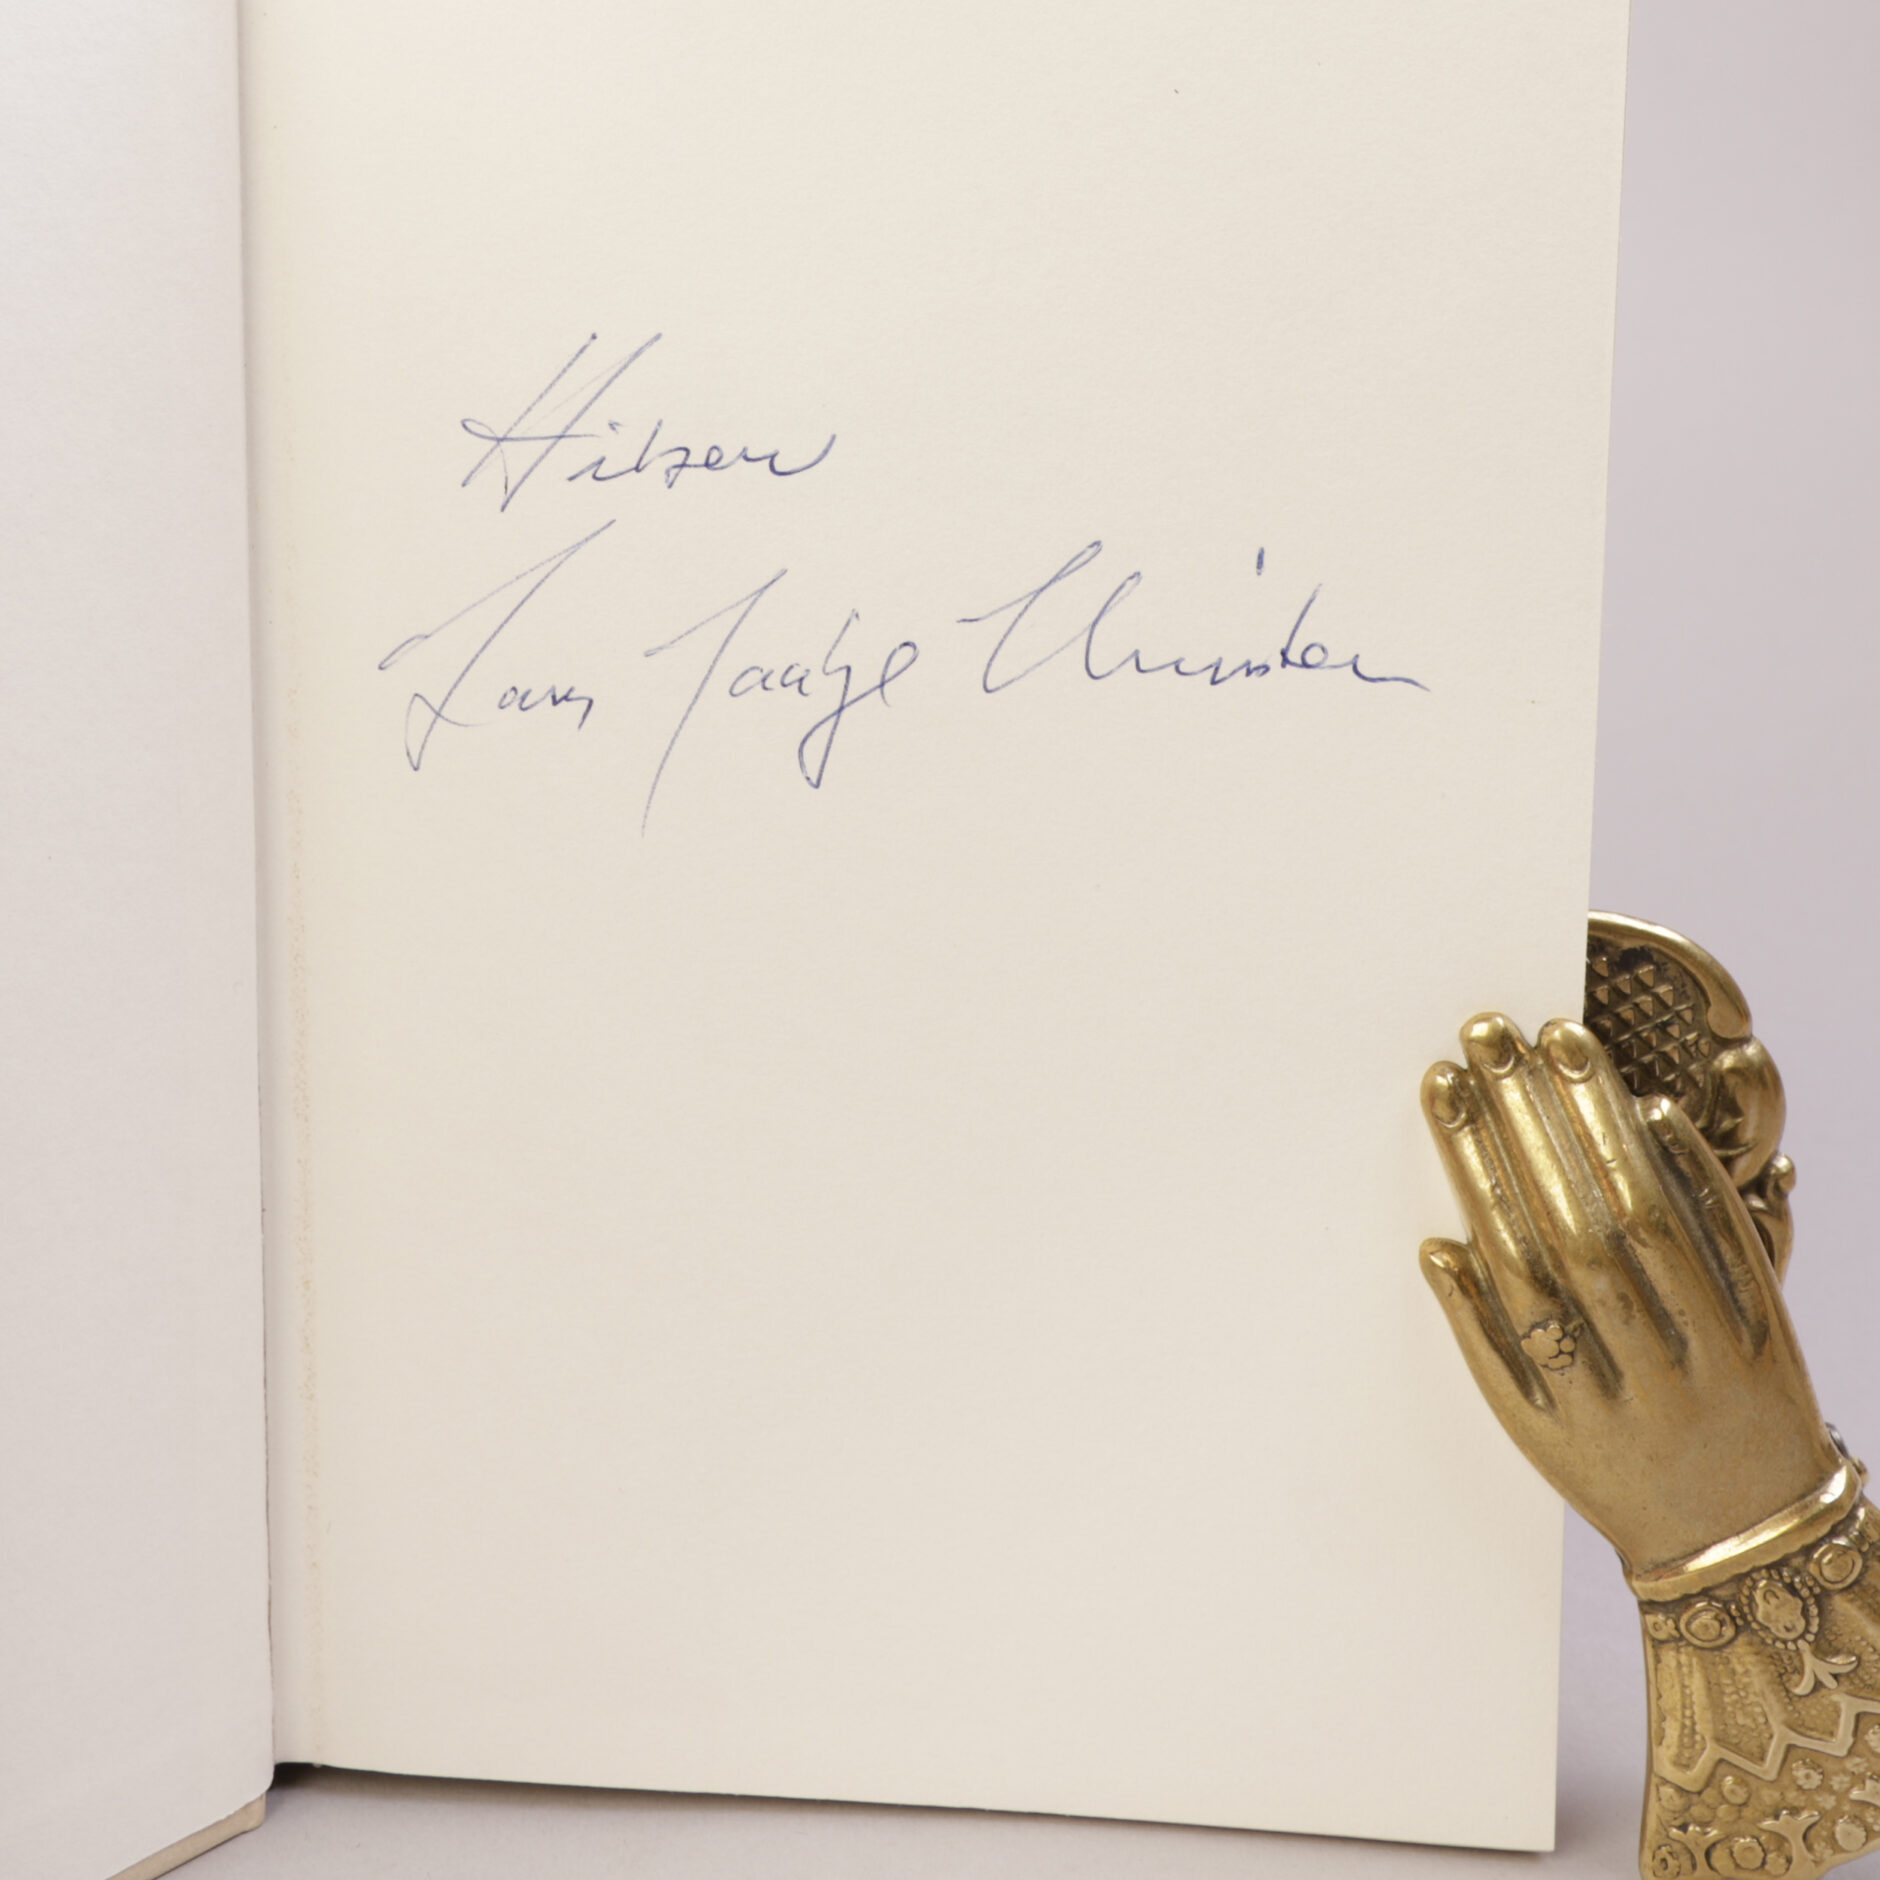 Hilsen
Lars Saabye Christensen